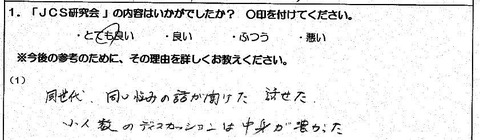 1.「JCS研究会」の内容はいかがでしたか？ ○印を付けてください。
・とても良い ・良い ・ふつう ・悪い
※今後の参考のために、その理由を詳しくお教えください。
(1)
同世代、同じ悩みの話が聞けた 話せた.
小人数のディスカッションは中身が濃かった